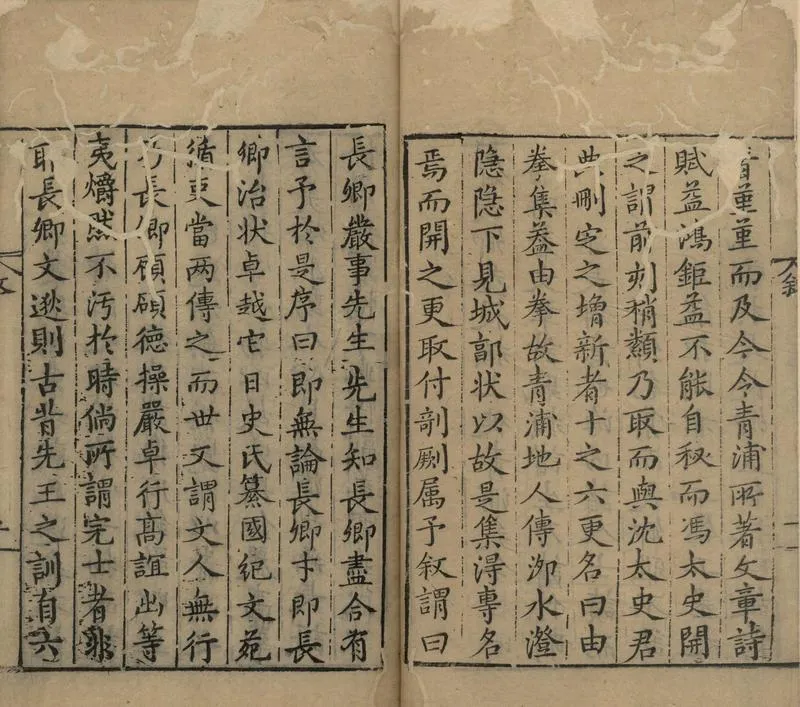 青董董而及今今青浦所著文章詩
賦益鴻鉅益不能自秘而馮太史開
之謂前刻稍纇乃取而與沈太史君
典刪定之增新者十之六更名曰由
拳集葢由拳故青浦地人傳泖水澄
隐隐下見城郭状以故是集淂專名
焉而開之更取付剞劂属予叙謂曰
長卿嚴事先生先生知長卿盡合有
言予於是序曰即無論長卿才即長
卿治状卓越它日史氏纂國紀文苑
循吏當两傳之而世又謂文人無行
乃長卿頎頎德操嚴卓行髙誼出等
夷爝然不汚於時倘所謂完士者非
耶長卿文逖則古昔先王之訓有六
叙